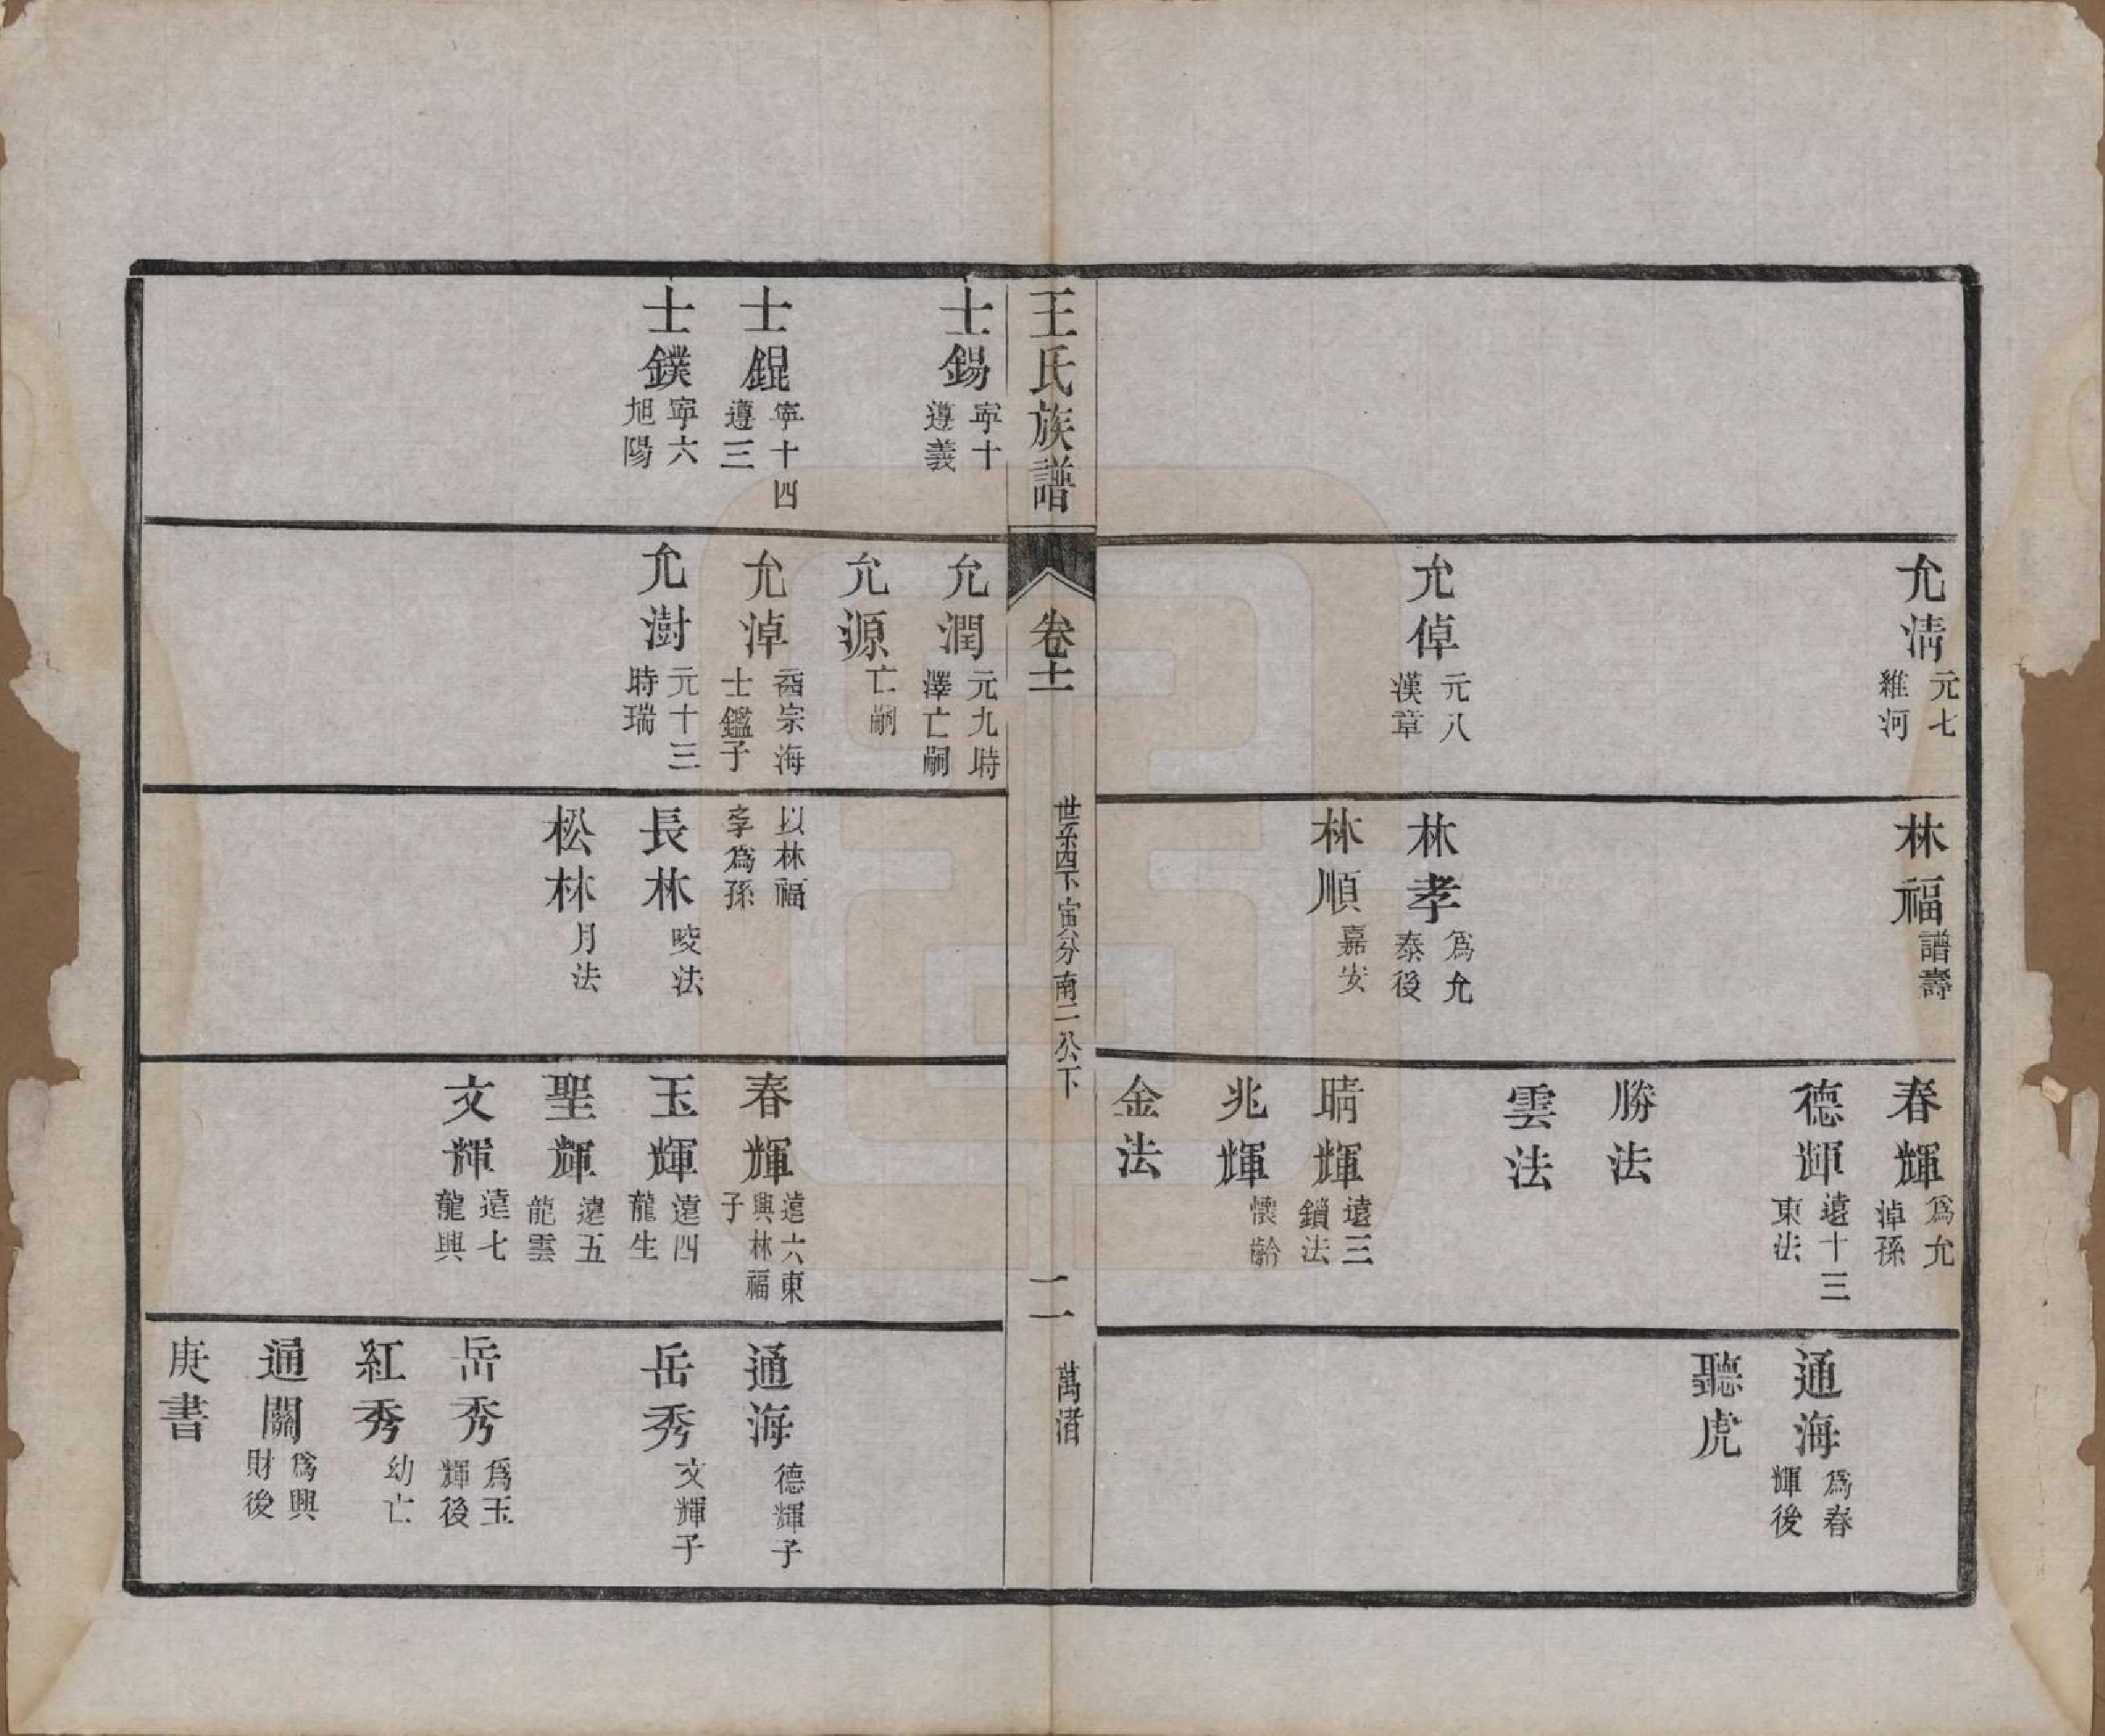 允清 元七 維河
允倬 元八 漢章
林福 譜壽
林孝 爲允 泰後
林順 嘉安
春輝 爲允 淖孫
德輝 遠十三 東法
勝法
雲法
晴輝 遠三 鎖法
兆輝 懷齡
金法
通海 爲春 輝後
聽虎
王氏族譜
卷十一
世系四下寅分南二公下
二一
萬渚
士錫 寜十 遵義
士錕 寜十四 遵三
士鏷 寜六 旭陽
允潤 元九時 澤亡嗣
允源 亡嗣
允淖 名宗海 士鑑子
允澍 元十三 時瑞
以林福 孝爲孫
長林 晈法
松林 月法
春輝 遠六東 興林福 子
玉輝 遠四 龍生
聖輝 遠五 龍雲
文輝 遠七 龍興
通海 德輝子
岳秀 文輝子
岳秀 爲玉 輝後
紅秀 幼亡
通關 爲興 財後
庚書